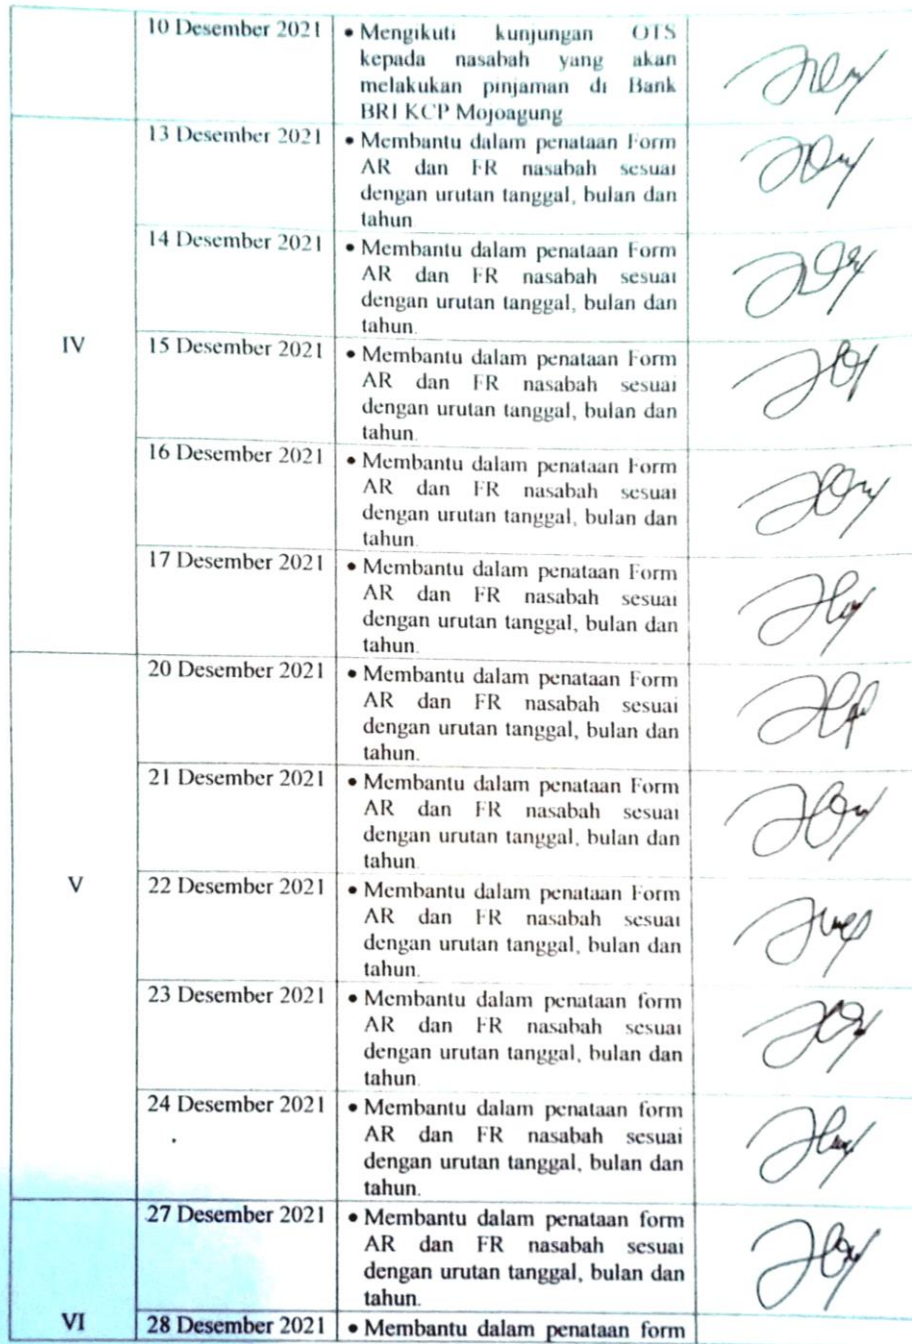 10 Desember 2021
• Mengikuti kunjungan OTS
kepada nasabah yang akan
melakukan pinjaman di Bank
BRI KCP Mojoagung
IV
13 Desember 2021
• Membantu dalam penataan Form
AR dan FR nasabah sesuai
dengan urutan tanggal, bulan dan
tahun
14 Desember 2021
• Membantu dalam penataan Form
AR dan FR nasabah sesuai
dengan urutan tanggal, bulan dan
tahun.
15 Desember 2021
• Membantu dalam penataan Form
AR dan FR nasabah sesuai
dengan urutan tanggal, bulan dan
tahun.
16 Desember 2021
• Membantu dalam penataan Form
AR dan FR nasabah sesuai
dengan urutan tanggal, bulan dan
tahun.
17 Desember 2021
• Membantu dalam penataan Form
AR dan FR nasabah sesuai
dengan urutan tanggal, bulan dan
tahun.
V
20 Desember 2021
• Membantu dalam penataan Form
AR dan FR nasabah sesuai
dengan urutan tanggal, bulan dan
tahun.
21 Desember 2021
• Membantu dalam penataan Form
AR dan FR nasabah sesuai
dengan urutan tanggal, bulan dan
tahun.
22 Desember 2021
• Membantu dalam penataan Form
AR dan FR nasabah sesuai
dengan urutan tanggal, bulan dan
tahun.
23 Desember 2021
• Membantu dalam penataan form
AR dan FR nasabah sesuai
dengan urutan tanggal, bulan dan
tahun.
24 Desember 2021
• Membantu dalam penataan form
AR dan FR nasabah sesuai
dengan urutan tanggal, bulan dan
tahun.
VI
27 Desember 2021
• Membantu dalam penataan form
AR dan FR nasabah sesuai
dengan urutan tanggal, bulan dan
tahun.
28 Desember 2021
• Membantu dalam penataan form